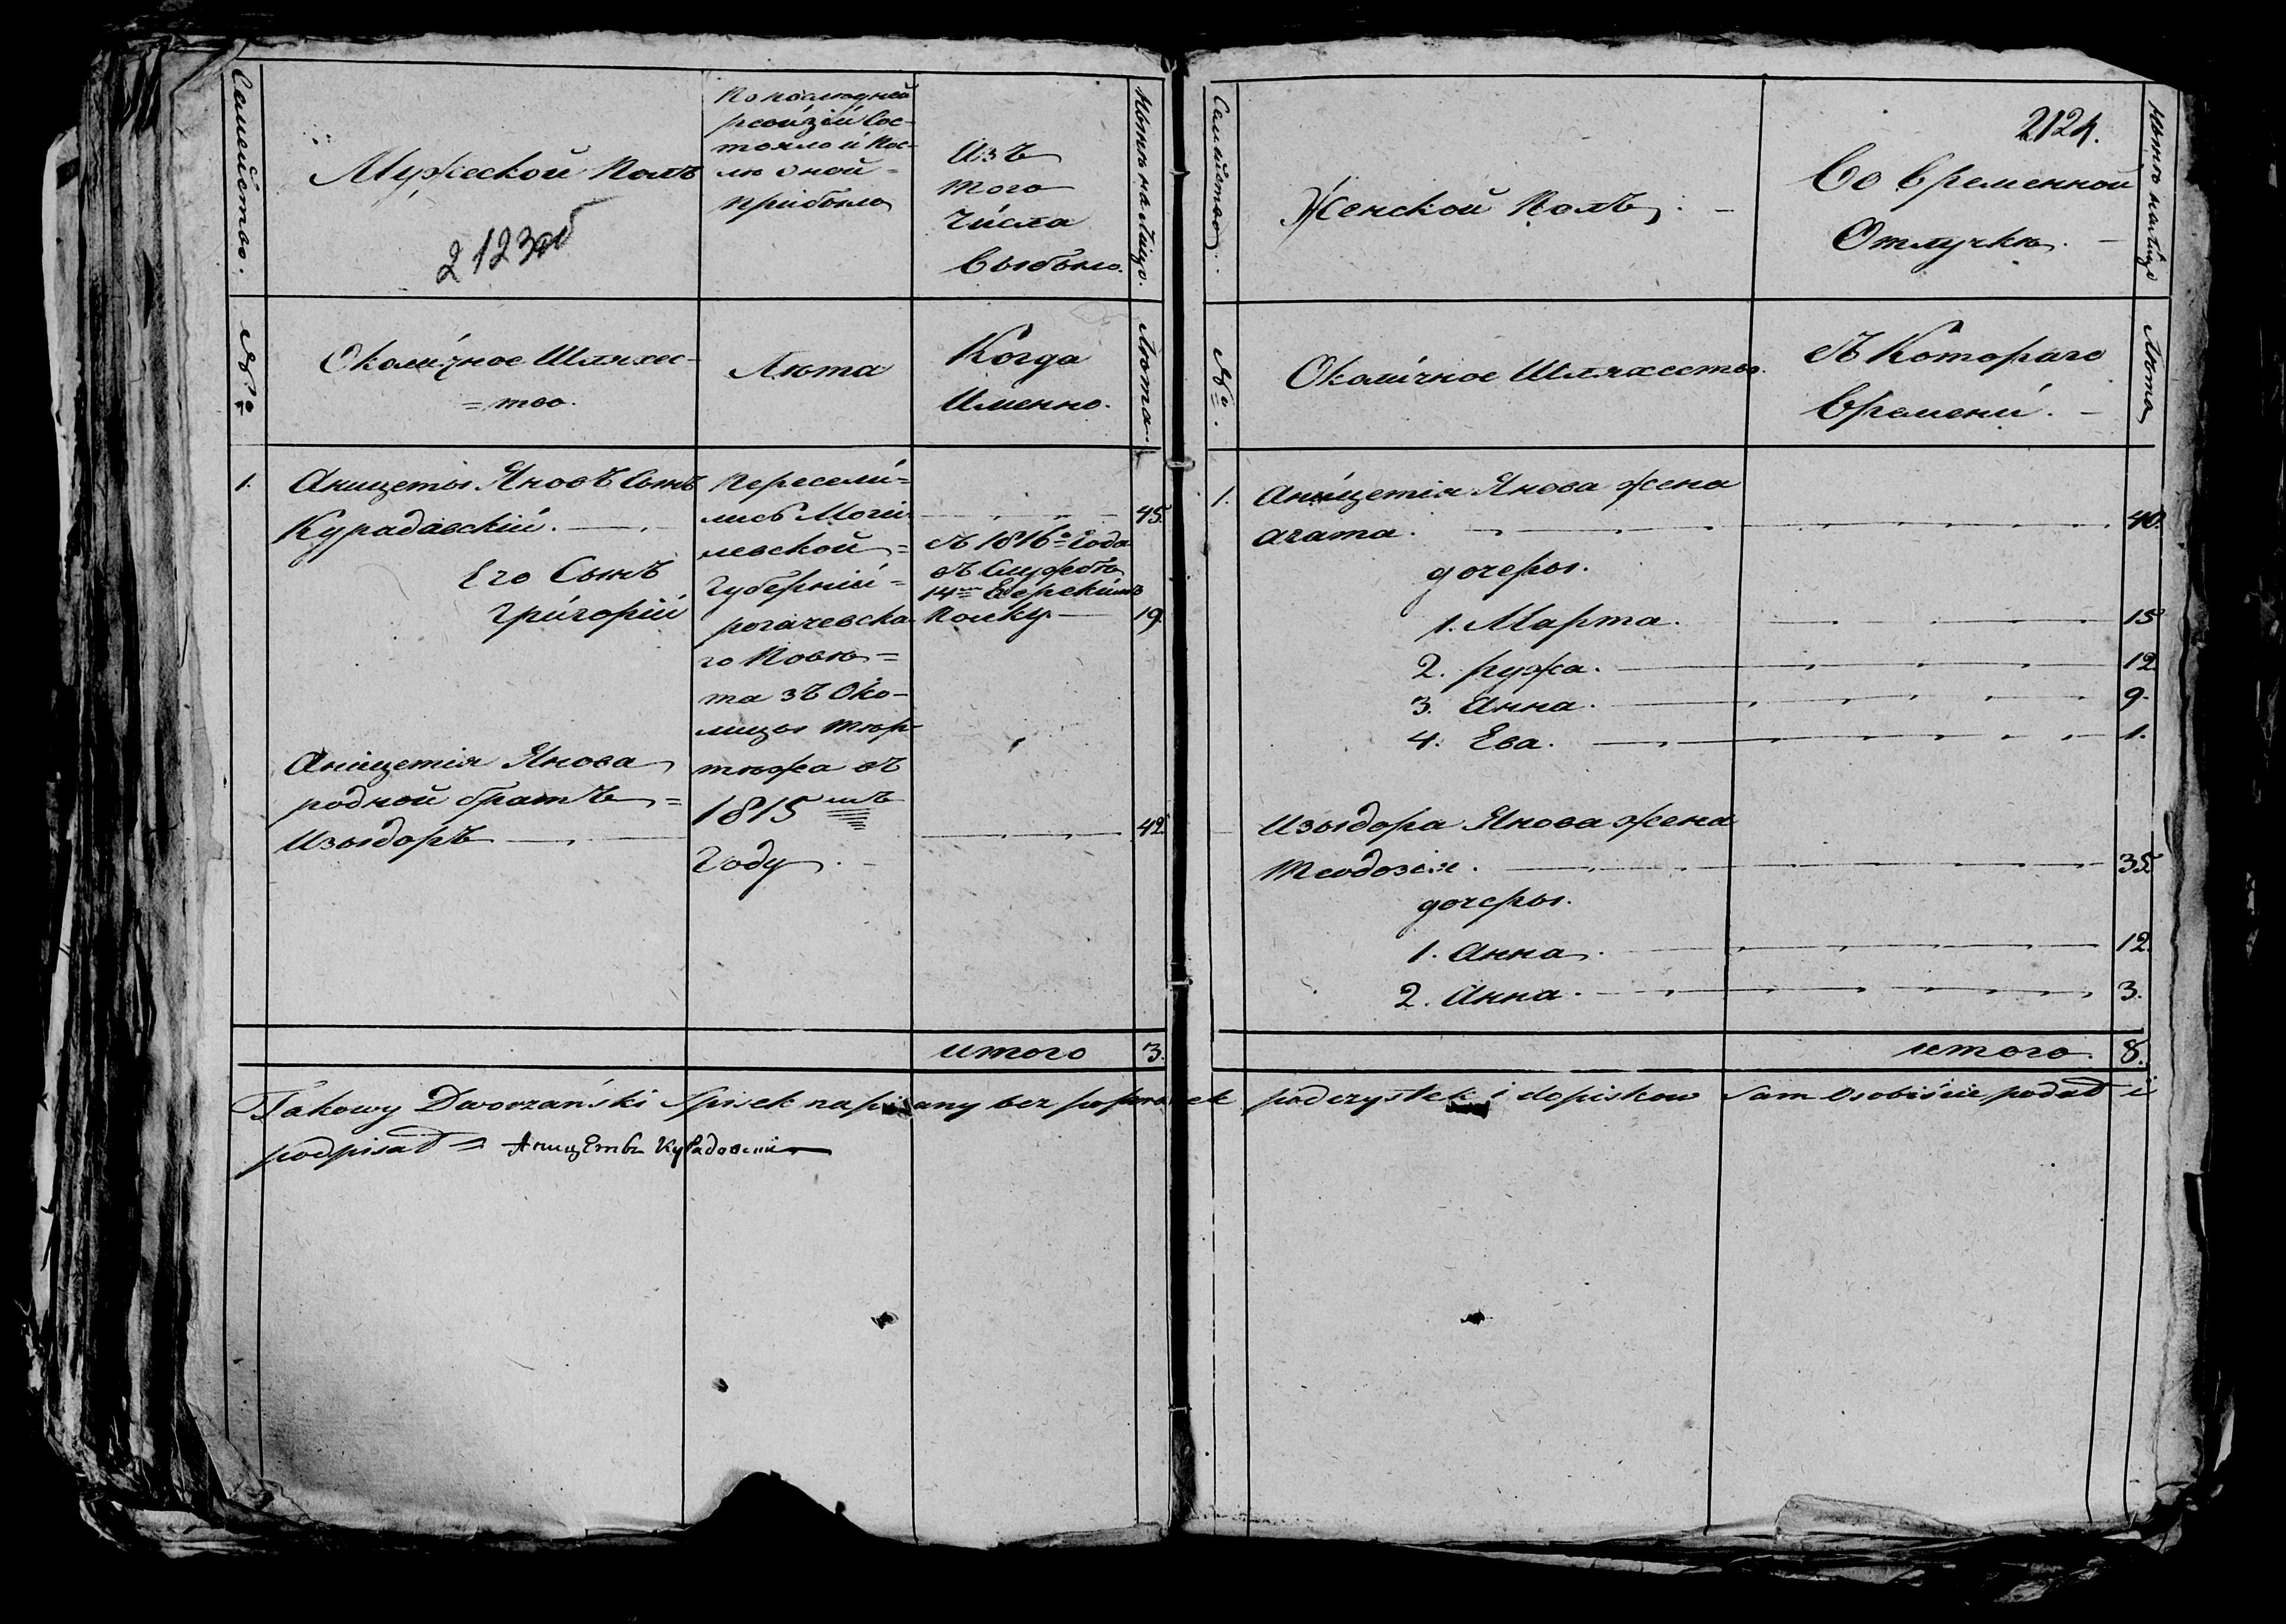 Семейство.
Мужеской Полъ
2123об
По последней
ревизіи Сос-
тояло и Пос-
ле оной =
прибыло
Изъ
того
числа
выбыло.
Ныне на лицо.
№
Околичное Шляхес-
= тво.
Лета
Когда
Именно.
Лета.
1.
Аницеты Яновъ Сынъ
Курадавскій.
Его Сынъ
Григорій
Аницетія Янова
родной братъ =
Изыдоръ
Пересели=
лись Моги
левской =
Губерній =
рогачевска
го Пове=
та зъ Око-
лицы Тер
тежа въ
1815 мъ
Году.
45.
съ 1816 Года
въ Службе
14 Егерскімъ
Полку
19
42
итого 3.
Семейство.
Женской Полъ.
2124.
Во временной
Отлучке.
Ныне налицо
№.
Околичное Шляхество.
Съ Котораго
Времени.
Лета
1.
Аницетія Янова жена
агата. 40.
дочеры.
1. Марта. 15
2. ружа. 12
3. Анна. 9.
4. Ева. 1.
Изыдора Янова жена
Теодозія. 35
дочеры.
1. Анна. 12.
2. Анна. 3.
итого. 8.
Takowy Dworzański Spisek napisany bez poprawek podczystek i dopiskow sam osobiście podał i
podpisał = Аницеты Курадовскі